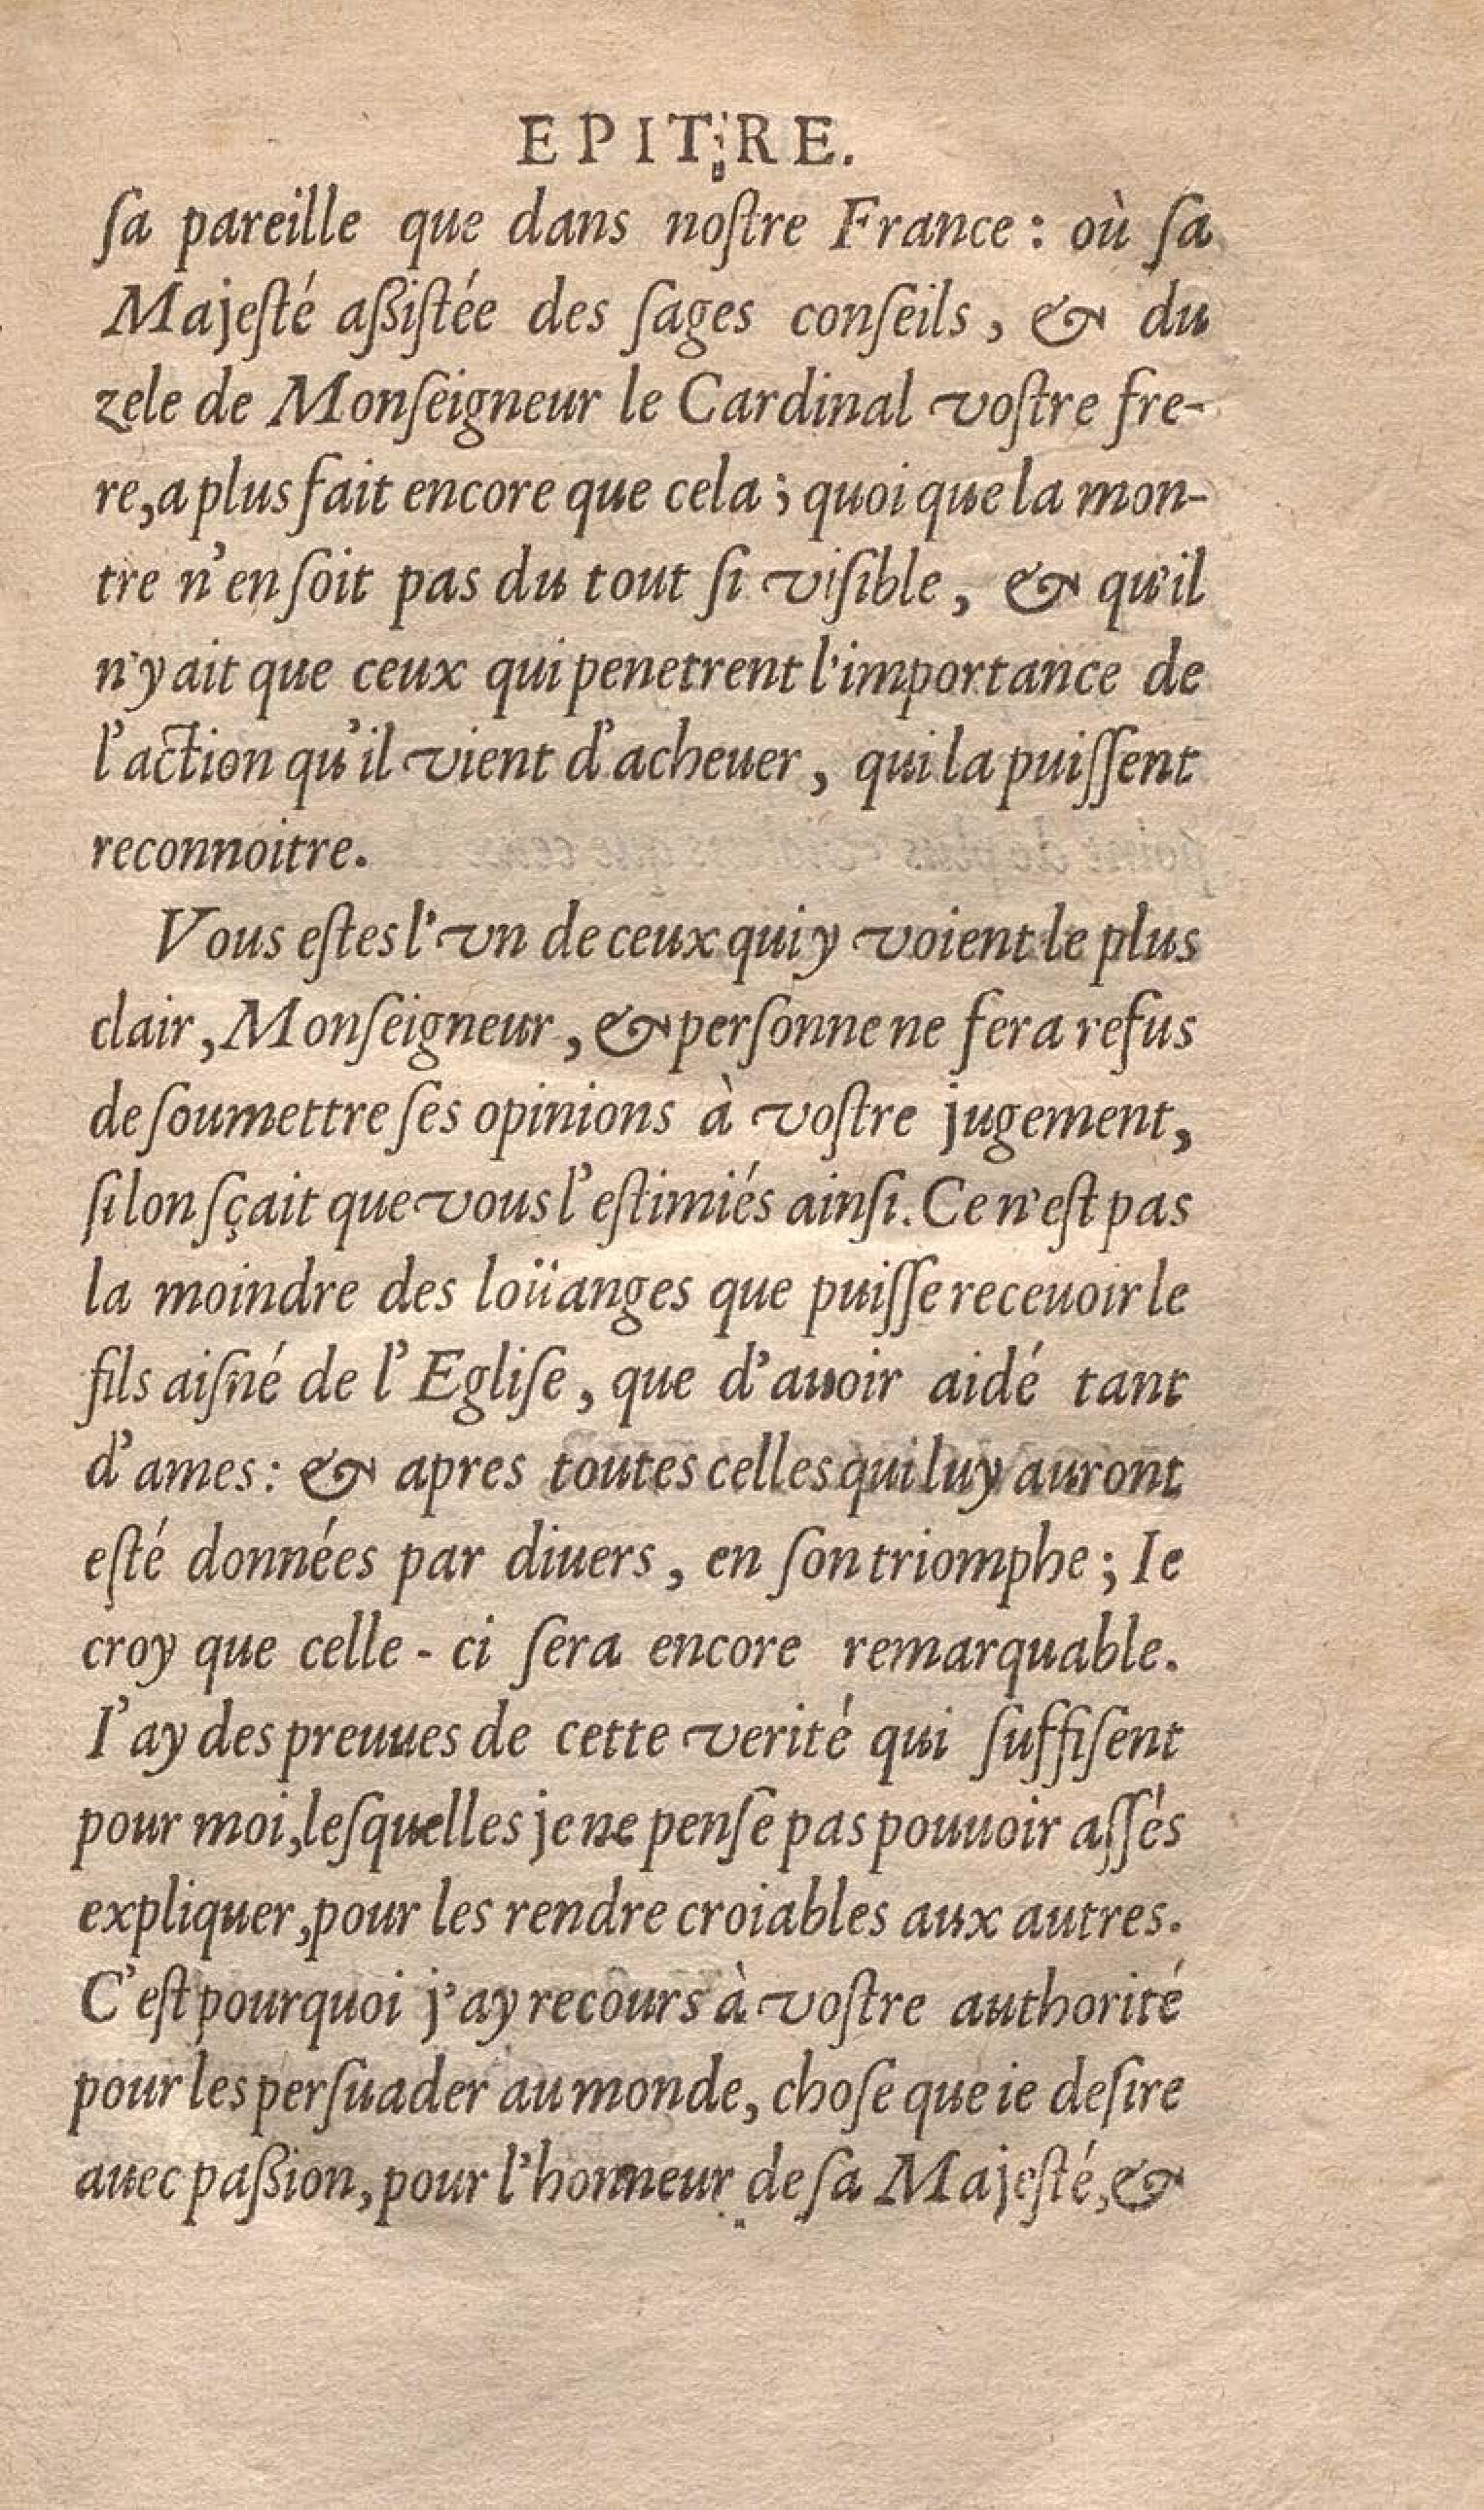 EPITRE.
ſa pareille que dans noſtre France : où ſa
Majeſté aßiſtée des ſages conſeils, & du
zele de Monſeigneur le Cardinal voſtre fre-
re, a plus fait encore que cela ; quoi que la mon-
tre n'en ſoit pas du tout ſi viſible, & qu'il
n'y ait que ceux qui penetrent l'importance de
l'action qu'il vient d'acheuer, qui la puiſſent
reconnoitre.
Vous eſtes l'vn de ceux qui y voient le plus
clair, Monſeigneur, & perſonne ne fera refus
de ſoumettre ſes opinions à voſtre jugement,
ſi lon ſçait que vous l'eſtimiés ainſi. Ce n'eſt pas
la moindre des loüanges que puiſſe receuoir le
fils aiſné de l'Egliſe, que d'auoir aidé tant
d'ames : & apres toutes celles qui luy auront
eſté données par diuers, en ſon triomphe ; Ie
croy que celle-ci ſera encore remarquable.
I'ay des preuues de cette verité qui ſuffiſent
pour moi, leſquelles je ne penſe pas pouuoir aſſés
expliquer, pour les rendre croiables aux autres.
C'eſt pourquoi j'ay recours à voſtre authorité
pour les perſuader au monde, choſe que ie deſire
auec paßion, pour l'honneur de ſa Majeſté, &